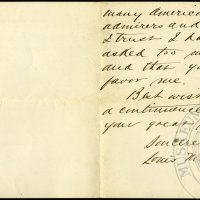 many America
admirers and
I trust I ha
asked too m
and that yo
favor me.
Best wish
a continuance
your great
Sincere
Louis